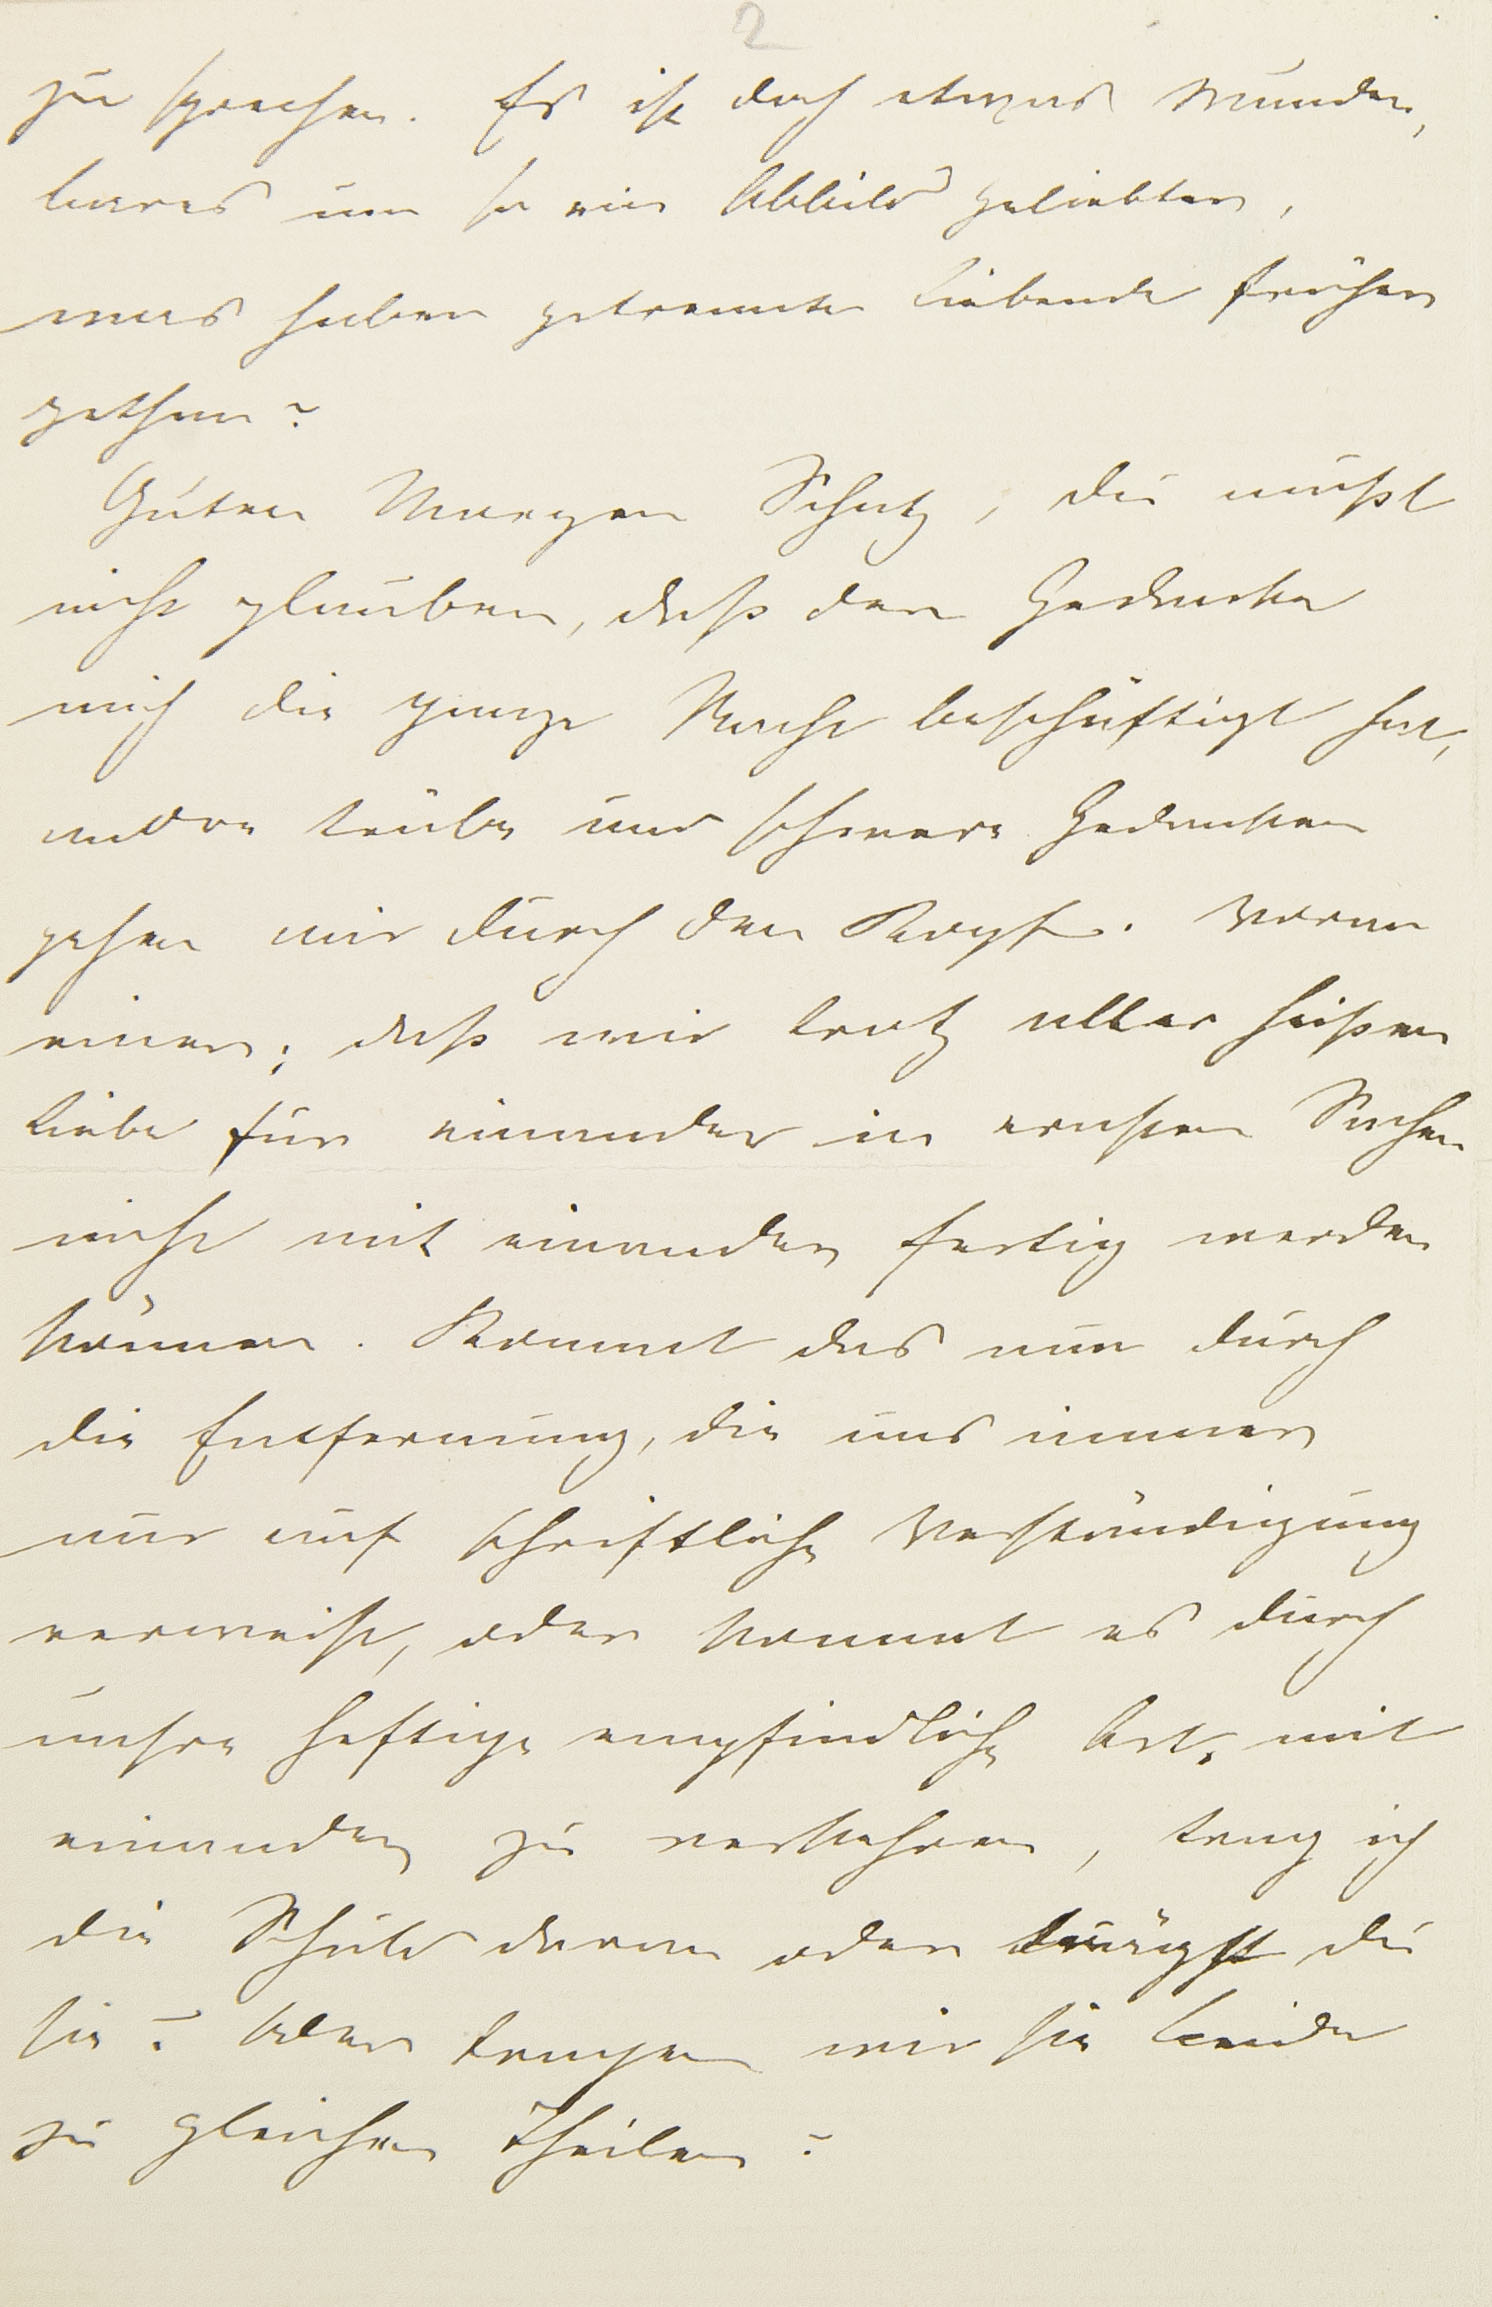 2
zu sprechen. Es ist doch etwas Wunder,
bares um so ein Abbild geliebten,
was haben getrennte Liebende früher
gethan?
Guten Morgen Schatz, du mußt
nicht glauben, daß der Gedanke
mich die ganze Nacht beschäftigt hat,
andre trübe und schwere Gedanken
gehen mir durch den Kopf. Voran
einer; daß wir trotz aller heißen
Liebe für einander in ernsten Sachen
nicht mit einander fertig werden
können. Kommt das nun durch
die Entfernung, die uns immer
nur auf schriftliche Verständigung
verweist, oder kommt es durch
unsre heftige empfindliche Art, mit
einander zu verkehren, trag ich
die Schuld daran oder trägst du
sie? Oder tragen wir sie beide
zu gleichen Theilen?